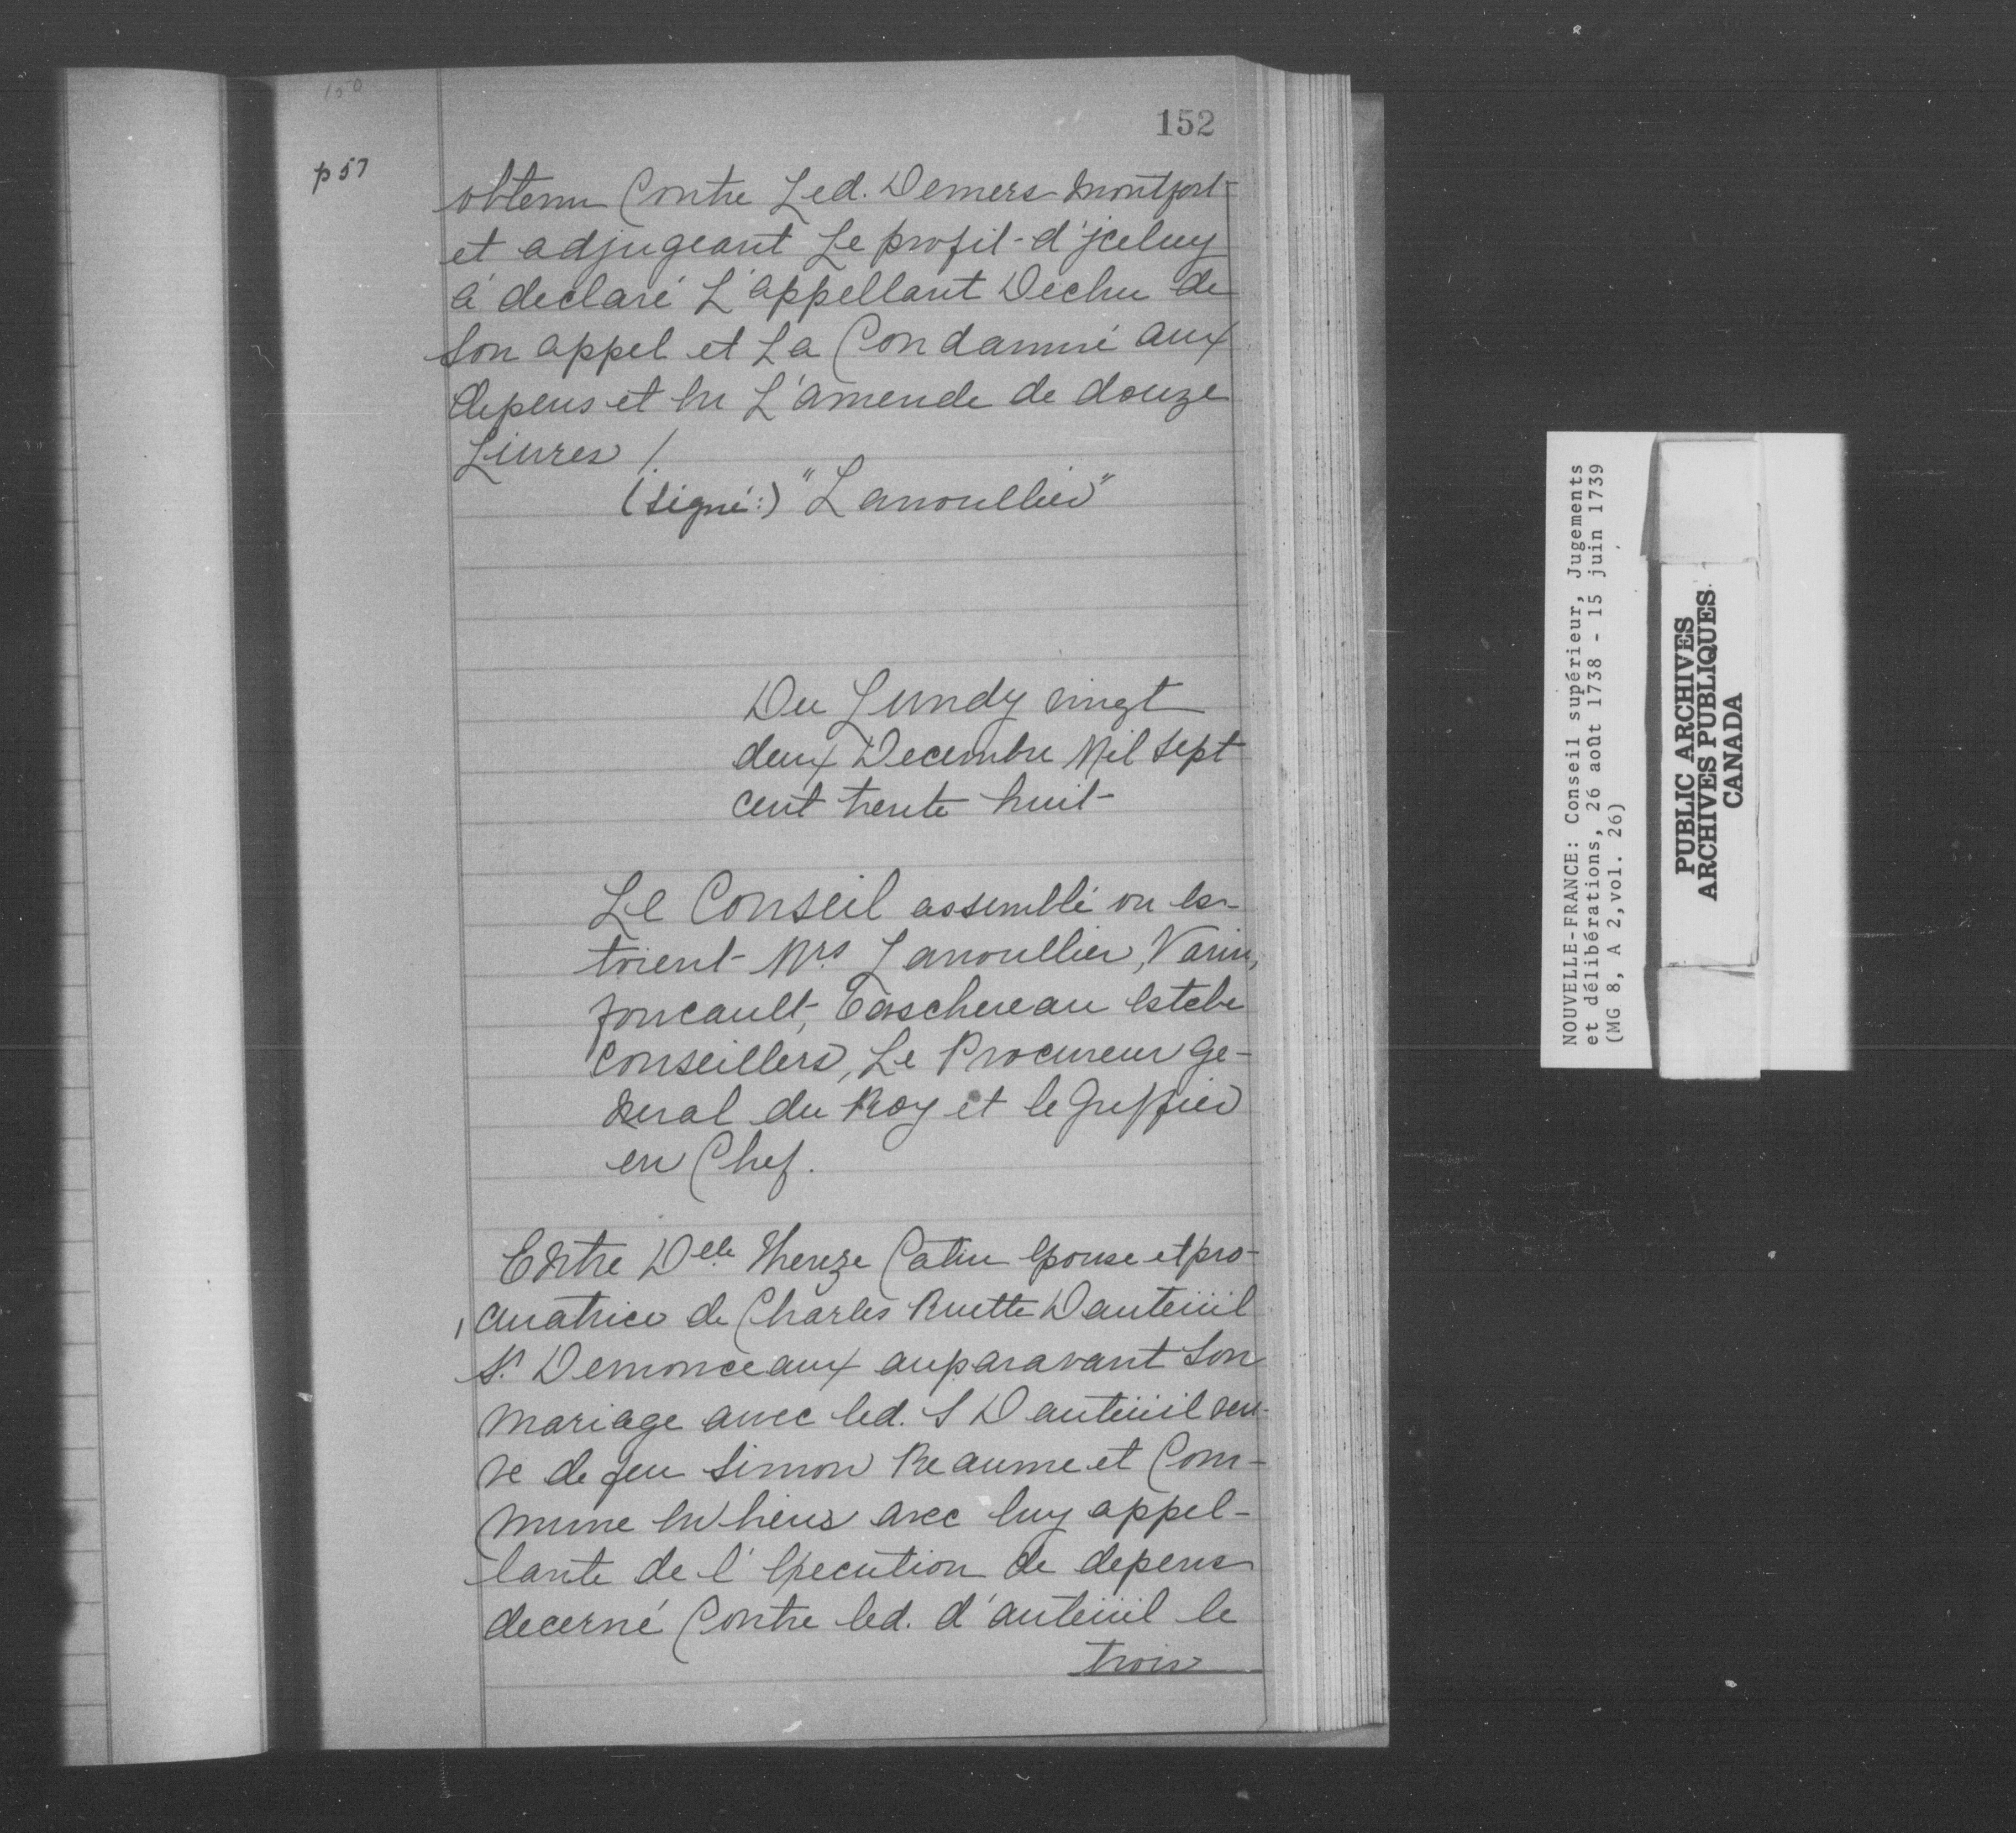 150
152
p 57
obtenu Contre Led. Demers Montfort
et adjugeant Le profit d'jceluy
à declaré L'appellant Dechu de
son appel et La Condamné aux
depens et En L'amende de douze
Livres /.
(signé:) "Lanoullier"
Du Lundy vingt
deux Decembre Mil sept
cent trente huit
Le Conseil assemblé ou Es-
toient Mrs. Lanoullier, Varin,
foucault, Taschereau Estebe
Conseillers, Le Procureur Ge-
neral du Roy et le Greffier
en Chef.
Entre Delle Thereze Catin Epouse et pro-
curatrice de Charles Ruette Dauteüil
Sr. Demonceaux auparavant Son
Mariage avec led. S Dauteüil veu-
ve de feu Simon Reaume et Com-
mune En biens avec luy appel-
lante de l'Execution de depens
decerné Contre led. d'auteüil le
trois
NOUVELLE-FRANCE: Conseil supérieur, Jugements
et délibérations, 26 août 1738 - 15 juin 1739
(MG 8, A 2,vol. 26)
PUBLIC ARCHIVES
ARCHIVES PUBLIQUES
CANADA